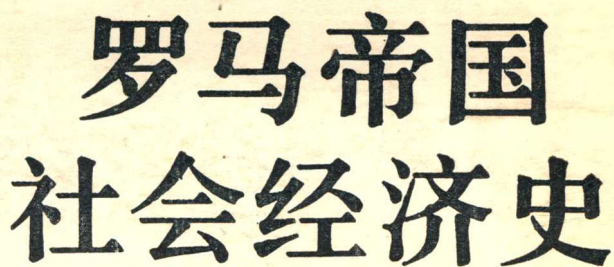 罗马帝国
社会经济史